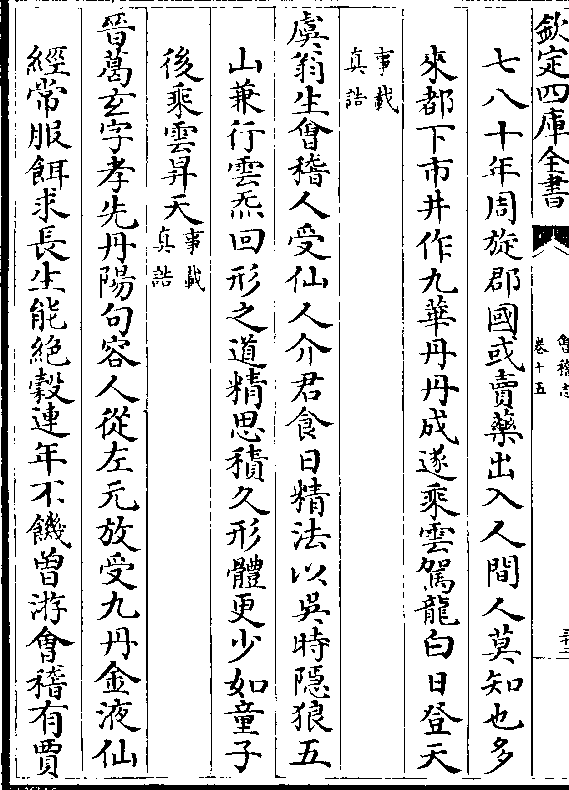 欽定四庫全書
會稽志
卷十五
七八十年周旋郡國或賣藥出入人間人莫知也多
來都下市井作九華丹丹成遂乘雲駕龍白日登天
事載
真誥
虞翁生會稽人受仙人介君食日精法以吳時隱狼五
山兼行雲炁回形之道精思積久形體更少如童子
後乘雲昇天事載
真誥
晉葛玄字孝先丹陽句容人從左元放受九丹金液仙
經常服餌求長生能絕穀連年不饑曾游會稽有賈